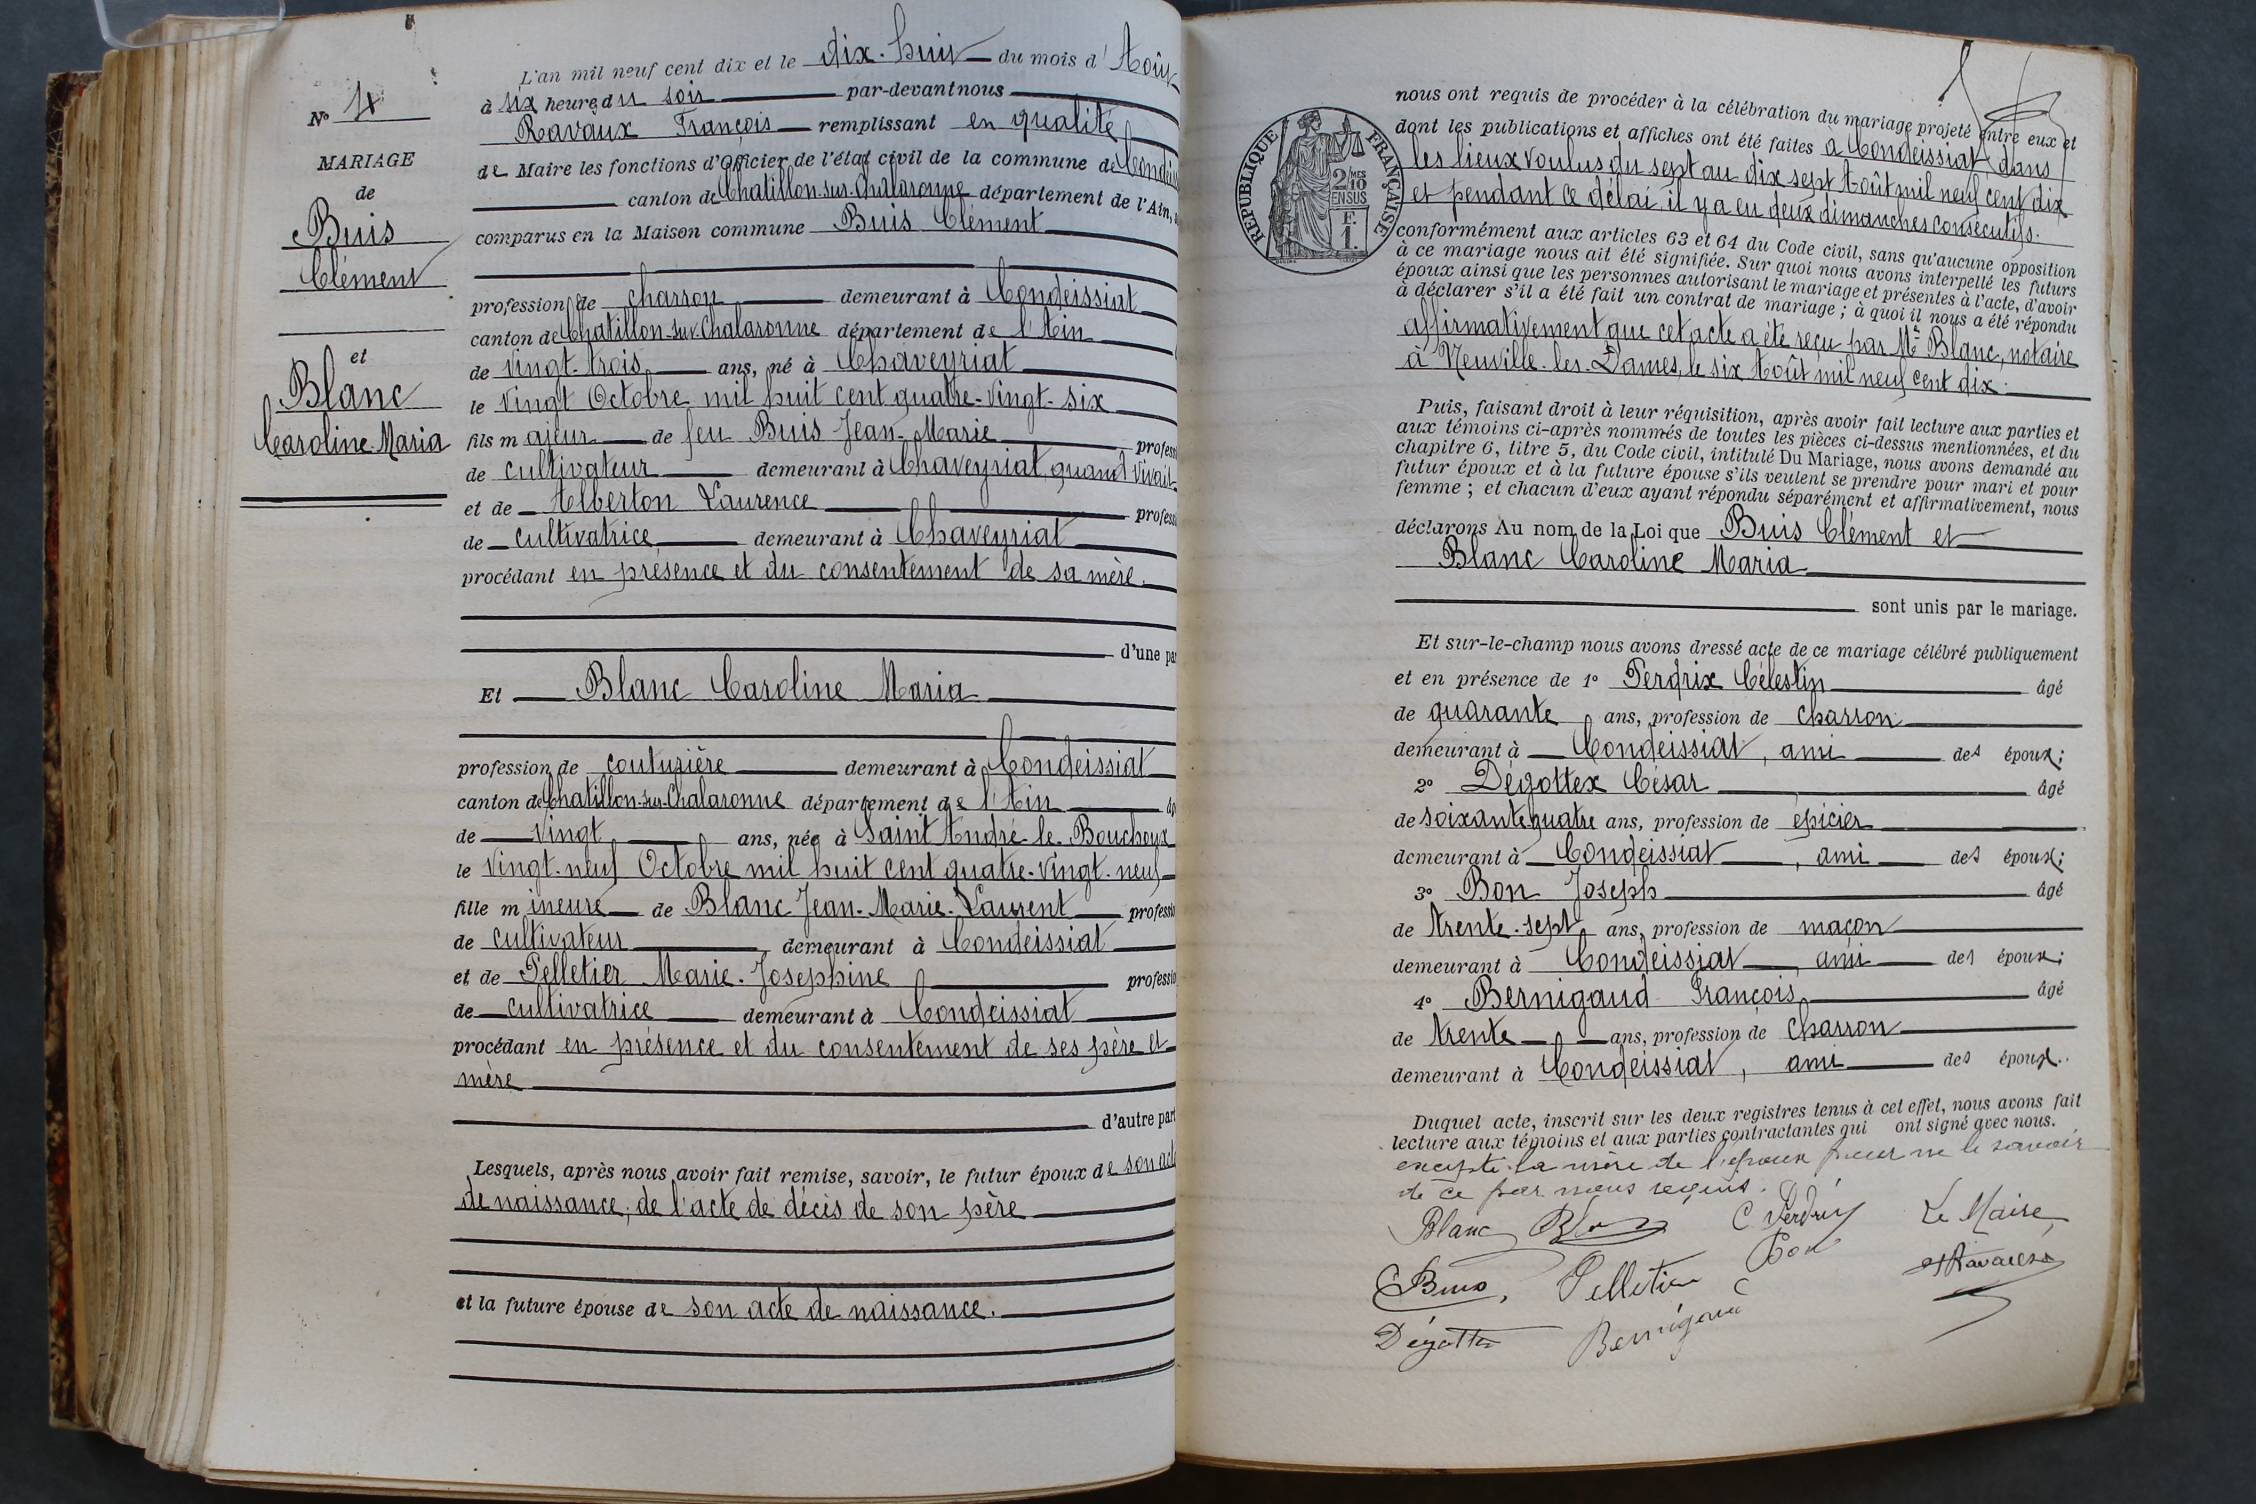 L'an mil neuf cent dix et le dix-huit du mois d'Août
à six heures du soir par-devant nous
Ravaux François remplissant en qualité
de Maire les fonctions d'Officier de l'état civil de la commune de Condeis
canton de Chatillon-sur-Chalaronne département de l'Ain,
comparus en la Maison commune Buis Clément
profession de charron demeurant à Condeissiat
canton de Chatillon-sur-Chalaronne département de l'Ain
de vingt-trois ans, né à Chaveyriat
le vingt Octobre mil huit cent quatre-vingt-six
fils majeur de feu Buis Jean-Marie profess
de cultivateur demeurant à Chaveyriat quand vivait
et de Alberton Laurence profess
de cultivatrice demeurant à Chaveyriat
procédant en présence et du consentement de sa mère
d'une pa
Et Blanc Caroline Maria
profession de couturière demeurant à Condeissiat
canton de Chatillon-sur-Chalaronne département de l'Ain
de vingt ans, née à Saint André-le-Bouchoux
le vingt-neuf Octobre mil huit cent quatre-vingt-neuf
fille mineure de Blanc Jean-Marie-Laurent professio
de cultivateur demeurant à Condeissiat
et de Pelletier Marie-Josephine professio
de cultivatrice demeurant à Condeissiat
procédant en présence et du consentement de ses père et
mère
d'autre part
Lesquels, après nous avoir fait remise, savoir, le futur époux de son acte
de naissance, de l'acte de décès de son père
et la future épouse de son acte de naissance.
No 4
MARIAGE
de
Buis
Clément
et
Blanc
Caroline-Maria
RÉPUBLIQUE FRANÇAISE
2/10MES
EN SUS
F.
1.
nous ont requis de procéder à la célébration du mariage projeté entre eux et
dont les publications et affiches ont été faites à Condeissiat dans
les lieux voulus du sept au dix sept Août mil neuf cent dix
et pendant ce délai, il y a eu deux dimanches consécutifs.
conformément aux articles 63 et 64 du Code civil, sans qu'aucune opposition
à ce mariage nous ait été signifiée. Sur quoi nous avons interpellé les futurs
époux ainsi que les personnes autorisant le mariage et présentes à l'acte, d'avoir
à déclarer s'il a été fait un contrat de mariage ; à quoi il nous a été répondu
affirmativement que cet acte a été reçu par Me Blanc, notaire
à Neuville-les-Dames, le six Août mil neuf cent dix.
Puis, faisant droit à leur réquisition, après avoir fait lecture aux parties et
aux témoins ci-après nommés de toutes les pièces ci-dessus mentionnées, et du
chapitre 6, titre 5, du Code civil, intitulé Du Mariage, nous avons demandé au
futur époux et à la future épouse s'ils veulent se prendre pour mari et pour
femme ; et chacun d'eux ayant répondu séparément et affirmativement, nous
déclarons Au nom de la Loi que Buis Clément et
Blanc Caroline Maria
sont unis par le mariage.
Et sur-le-champ nous avons dressé acte de ce mariage célébré publiquement
et en présence de 1° Perdrix Célestin âgé
de quarante ans, profession de charron
demeurant à Condeissiat, ami des époux;
2° Dégottex César âgé
de soixante quatre ans, profession de épicier
demeurant à Condeissiat, ami des époux;
3° Bon Joseph âgé
de trente-sept ans, profession de maçon
demeurant à Condeissiat, ami des époux;
4° Bernigaud François âgé
de trente ans, profession de charron
demeurant à Condeissiat, ami des époux.
Duquel acte, inscrit sur les deux registres tenus à cet effet, nous avons fait
lecture aux témoins et aux parties contractantes qui ont signé avec nous.
excepté la mère de l'époux pour ne le savoir
de ce par nous requis.
Blanc C Perdrix Le Maire
Buis, Pelletier Bon
Dégottex Bernigaud